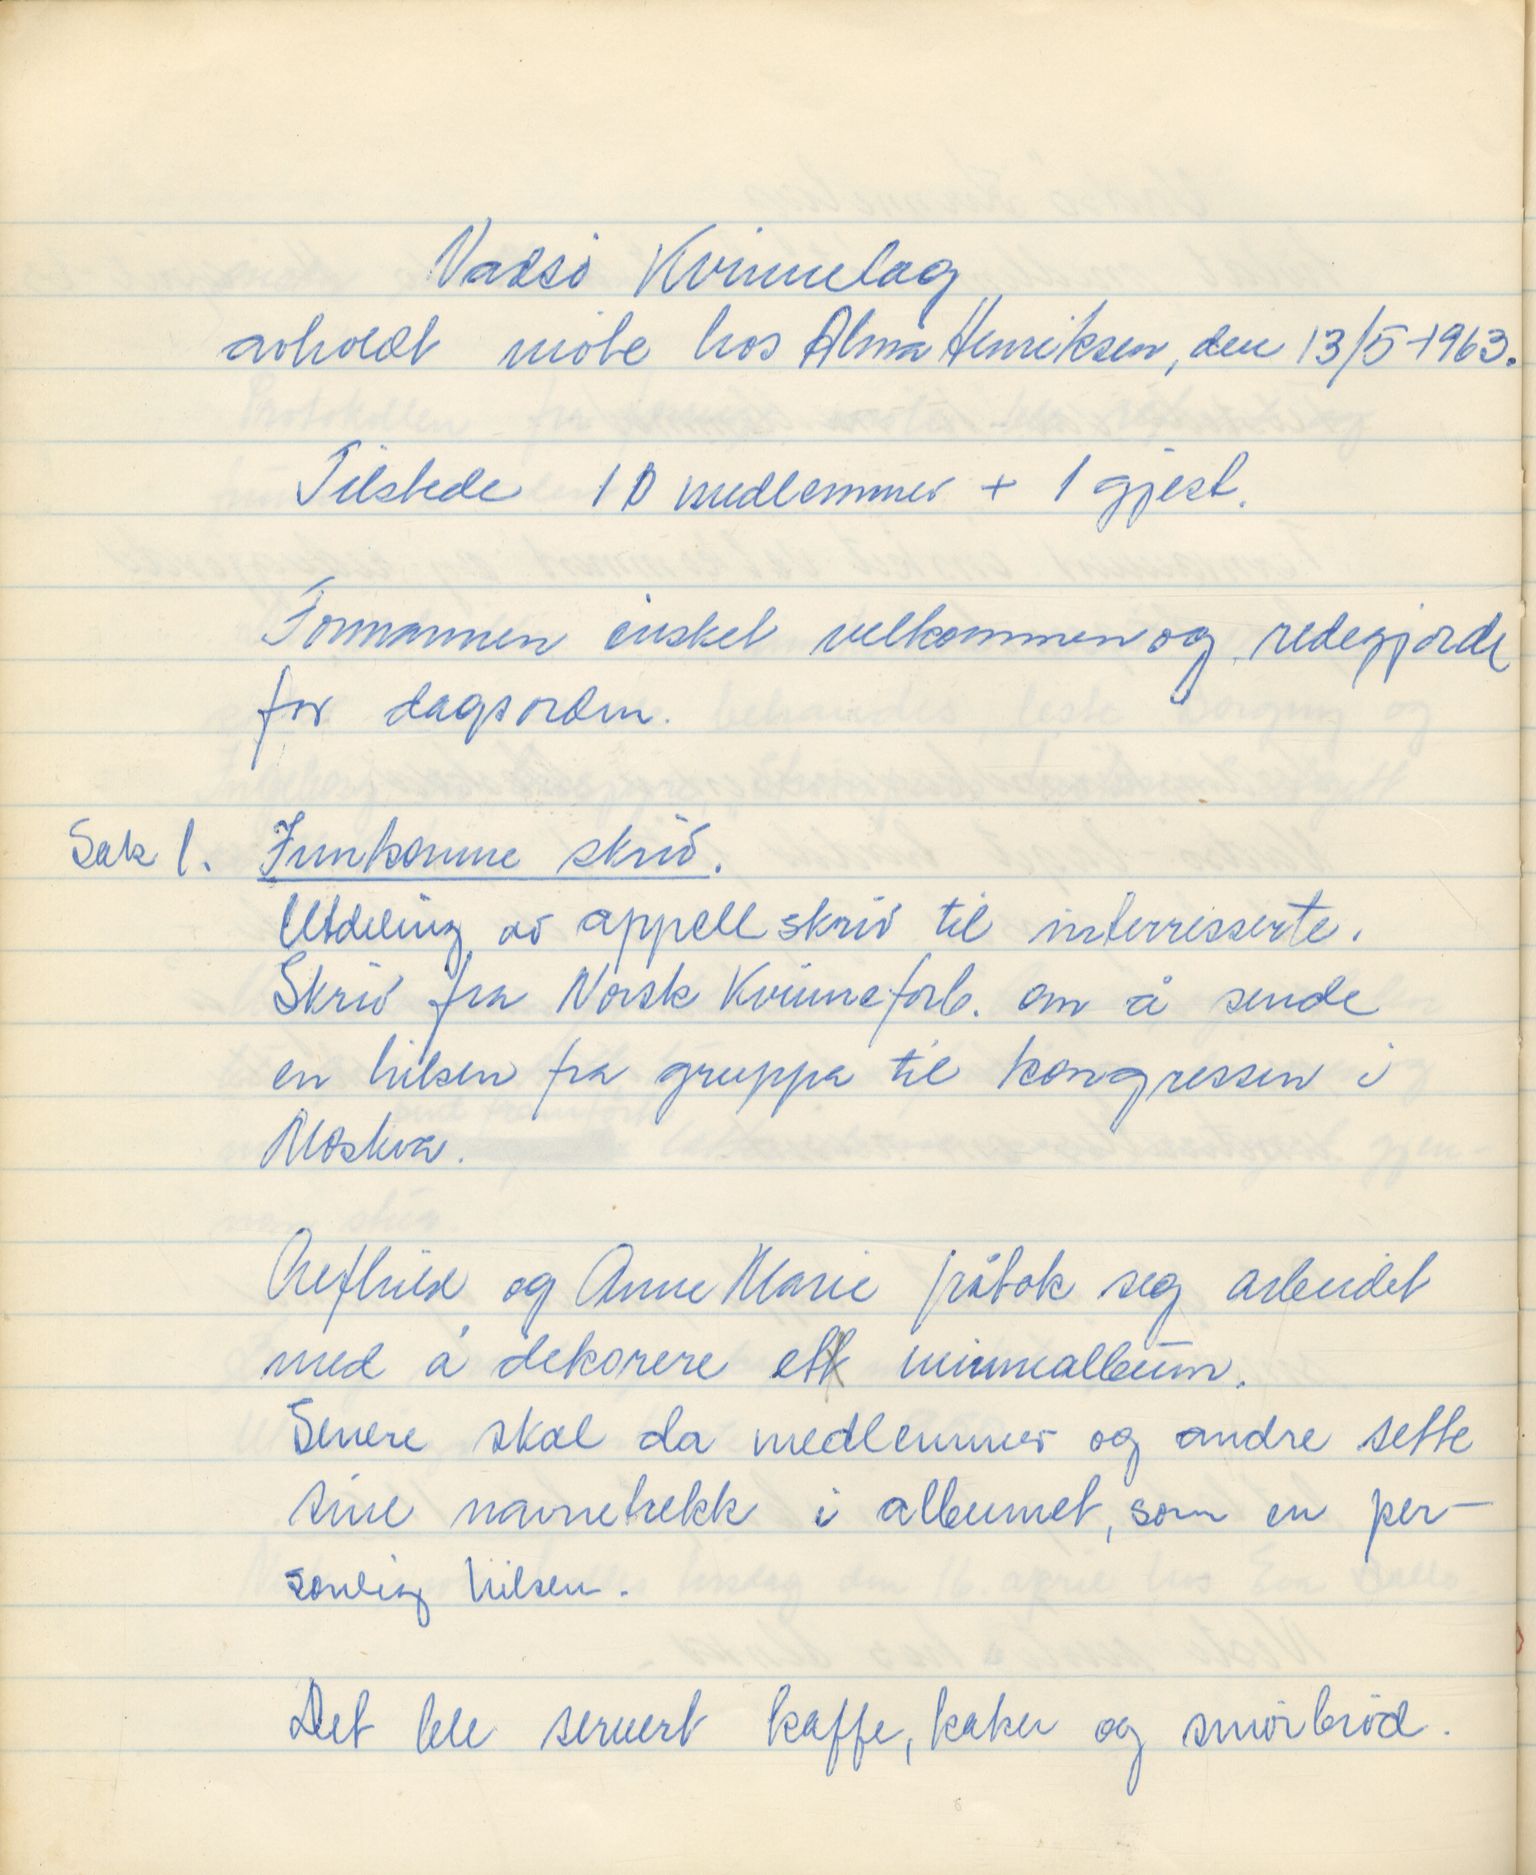 Vadsö Kvinnelag
avholdt möte hos Alma Henriksen, den 13/5-1963.
Tilstede 10 medlemmer + 1 gjest.
Formannen önsket velkommen og redegjorde
for dagsorden.
Sak 1. Innkomne skriv.
Utdeling av appell skriv til interresserte.
Skriv fra Norsk Kvinneforb. om å sende
en hilsen fra gruppa til kongressen i
Moskva.
og Anne Marie påtok seg arbeidet
med å dekorere ett minnealbum.
Senere skal da medlemmer og andre sette
sine navnetrekk i albumet, som en per-
sonlig hilsen.
Det ble servert kaffe, kaker og smörbröd.